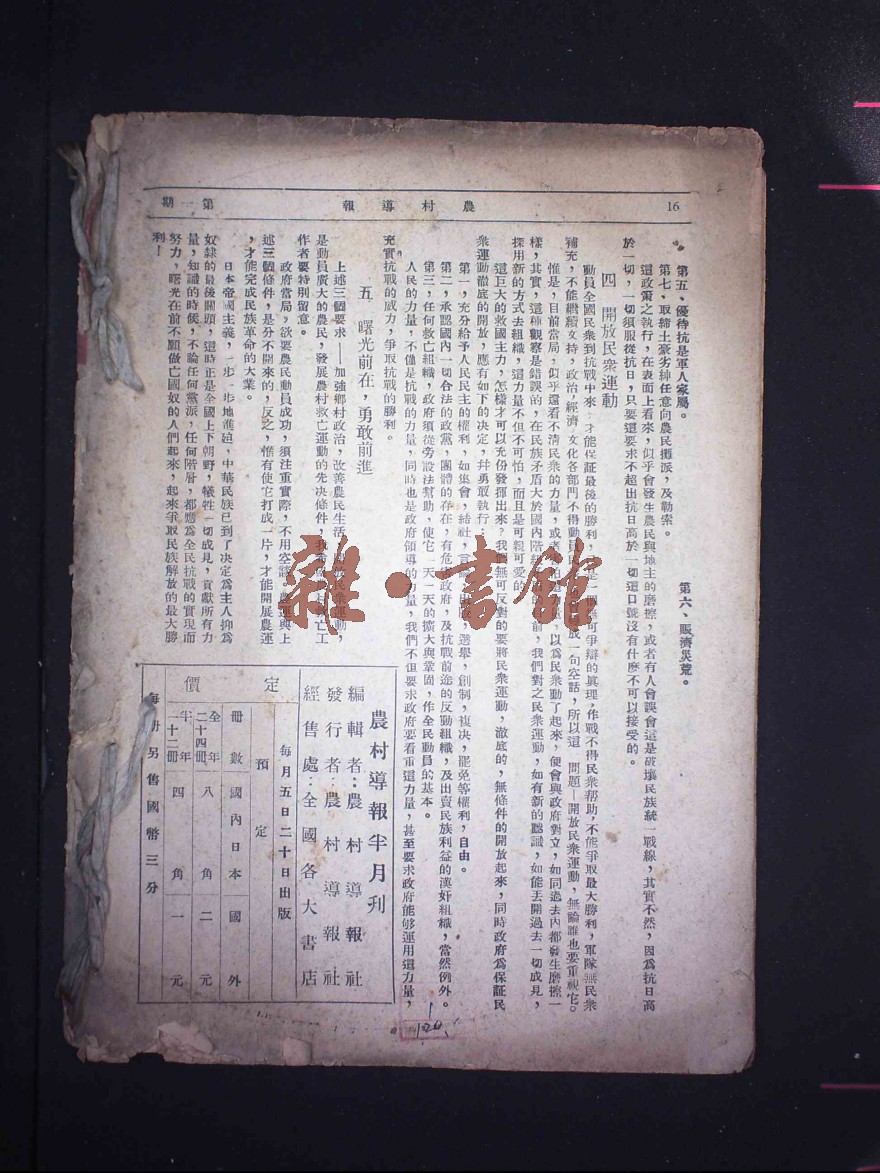 16
農村導報
第一期
第五、優待抗是軍人家屬。
第六、賑濟災荒。
第七、取締土豪劣紳任意向農民攤派，及勒索。
這政策之執行，在表面上看來，似乎會發生農民與地主的磨擦，或者有人會誤會這是破壞民族統一戰線，其實不然，因爲抗日高
於一切，一切須服從抗日，只要這要求不超出抗日高於一切這口號沒有什麽不可以接受的。
四 開放民衆運動
動員全國民衆到抗戰中來，才能保証最後的勝利，是一個無可爭辯的眞理，作戰不得民衆帮助，不能爭取最大勝利，軍隊無民衆
補充，不能繼續支持，政治，經濟，文化各部門不得動員 成一句空話，所以這一問題—開放民衆運動，無論誰也要重視它。
惟是，目前當局，似乎還看不清民衆的力量，或者 以爲民衆動了起來，便會與政府對立，如同過去內部發生磨擦一
樣，其實，這種觀察是錯誤的，在民族矛盾大於國內階級 前，我們對之民衆運動，如有新的認識，如能丟開過去一切成見，
採用新的方式去組織，這力量不但不可怕，而且是可親可愛的。
這巨大的救國主力，怎樣才可以充份發揮出來？我們無可反對的要將民衆運動，澈底的，無條件的開放起來，同時政府爲保証民
衆運動澈底的開放，應有如下的决定，幷勇敢執行：
第一，充分給予人民民主的權利，如集會，結社，言論， 選舉，創制，複決，罷免等權利，自由。
第二，承認國內一切合法的政黨，團體的存在，有危害政府，及抗戰前途的反動組織，及出賣民族利益的漢奸組織，當然例外。
第三，任何救亡組織，政府須從旁設法幫助，使它一天一天的擴大與鞏固，作全民動員的基本。
人民的力量，不僅是抗戰的力量，同時也是政府領導的力量，我們不但要求政府要看重這力量，甚至要求政府能够運用這力量，
充實抗戰的威力，爭取抗戰的勝利。
五、曙光前在，勇敢前進
上述三個要求——加強鄉村政治，改善農民生活，開放民衆運動，
是動員廣大的農民，發展農村救亡運動的先決條件，我 村救亡工
作者要特别留意。
政府當局，欲要農民動員成功，須注重實際，不用空談，農運與上
述三個條件，是分不開來的，反之，惟有使它打成一片，才能開展農運
，才能完成民族革命的大業。
日本帝國主義，一步一步地進迫，中華民族已到了决定爲主人抑爲
奴隷的最後關頭，這時正是全國上下朝野，犧牲一切成見，貢獻所有力
量，知識的時候，不論任何黨派，任何階層，都應爲全民抗戰的實現而
努力，曙光在前不願做亡國奴的人們起來，起來爭取民族解放的最大勝
利！
農村導報半月刊
編輯者：農村導報社
發行者：農村導報社
經售處：全國各大書店
每月五日二十日出版
定價
預定
冊數 國內日本 國外
全年二十四冊 八角 二元
半年一十二冊 四角 一元
每冊另售國幣三分
120
雜·書館